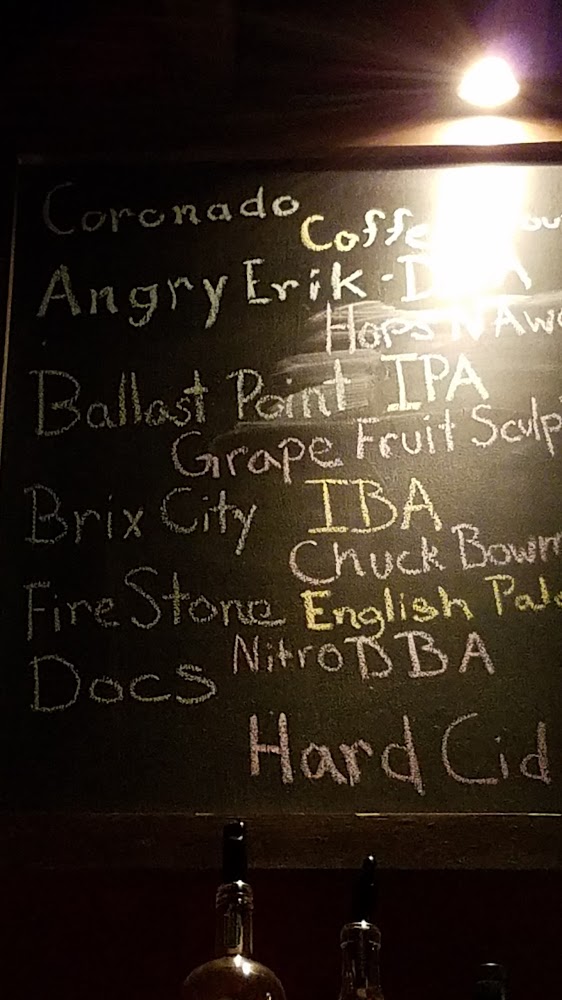 Coronado
Coffe
Angry Erik -
Hops N Awe
Ballast Point IPA
Grape Fruit Sculp
Brix City IBA
Chuck Bowm
FireStone English Pale
Nitro DBA
Docs
Hard Cid